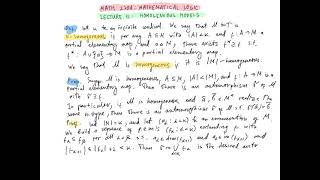 MATH 220A: MATHEMATICAL LOGIC
LECTURE 11: HOMOGENEOUS MODELS
Def. Let κ be an infinite cardinal. We say that M ⊨ T is
κ-homogeneous if for any A ⊆ M with |A| < κ and f: A → M a
partial elementary map, and a ∈ M, there exists f* ⊇ f s.t.
f*: A ∪ {a} → M is a partial elementary map.
We say that M is homogeneous if it is |M|-homogeneous.
Prop. Suppose M is homogeneous, A ⊆ M, |A| < |M|, and f: A → M a
partial elementary map. Then there is an automorphism σ of M
with σ ⊇ f.
In particular, if M is homogeneous and a, b ∈ M realize the
same n-type, then there is an automorphism σ of M
Proof. Let |M| = κ, and let be an enumeration of M.
We build a sequence of p.e.m.'s extending f, with
for all
and Then is the desired auto